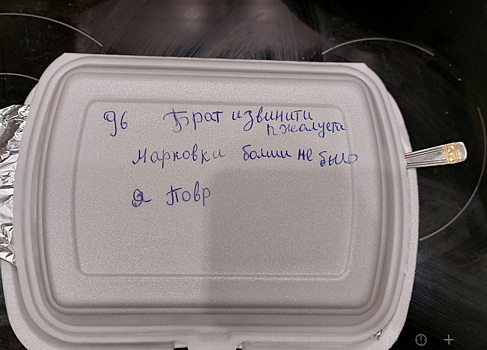 96 Брат извинити
пжалуста
Марковки болши не было
Я Повр